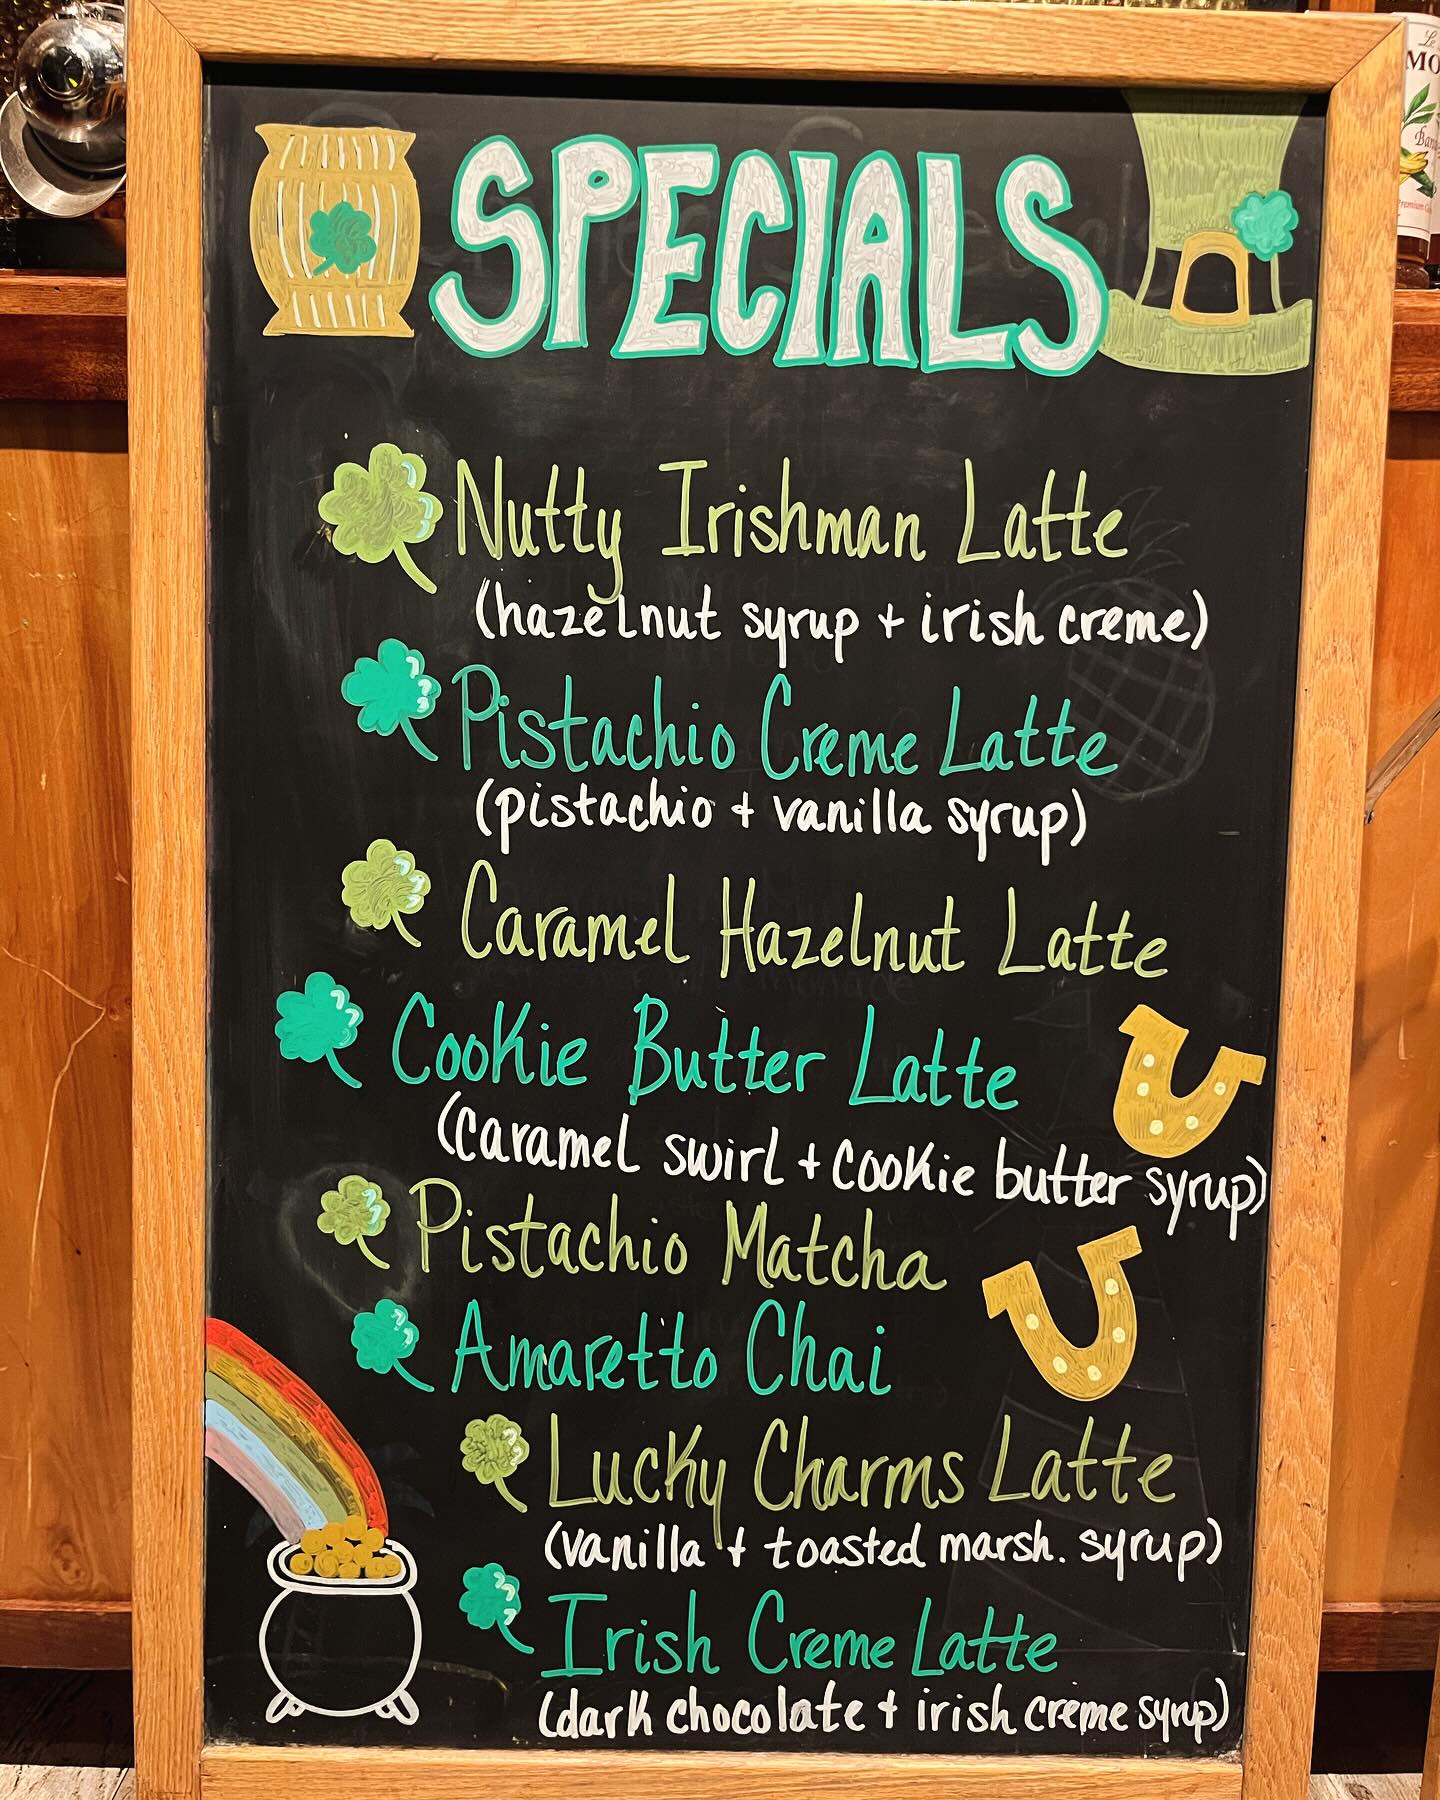 SPECIALS
Nutty Irishman Latte
(hazelnut syrup + irish creme)
Pistachio Creme Latte
(pistachio + vanilla syrup)
Caramel Hazelnut Latte
Cookie Butter Latte
(caramel swirl + cookie butter syrup)
Pistachio Matcha
Amaretto Chai
Lucky Charms Latte
(vanilla + toasted marsh. syrup)
Irish Creme Latte
(dark chocolate + irish creme syrup)